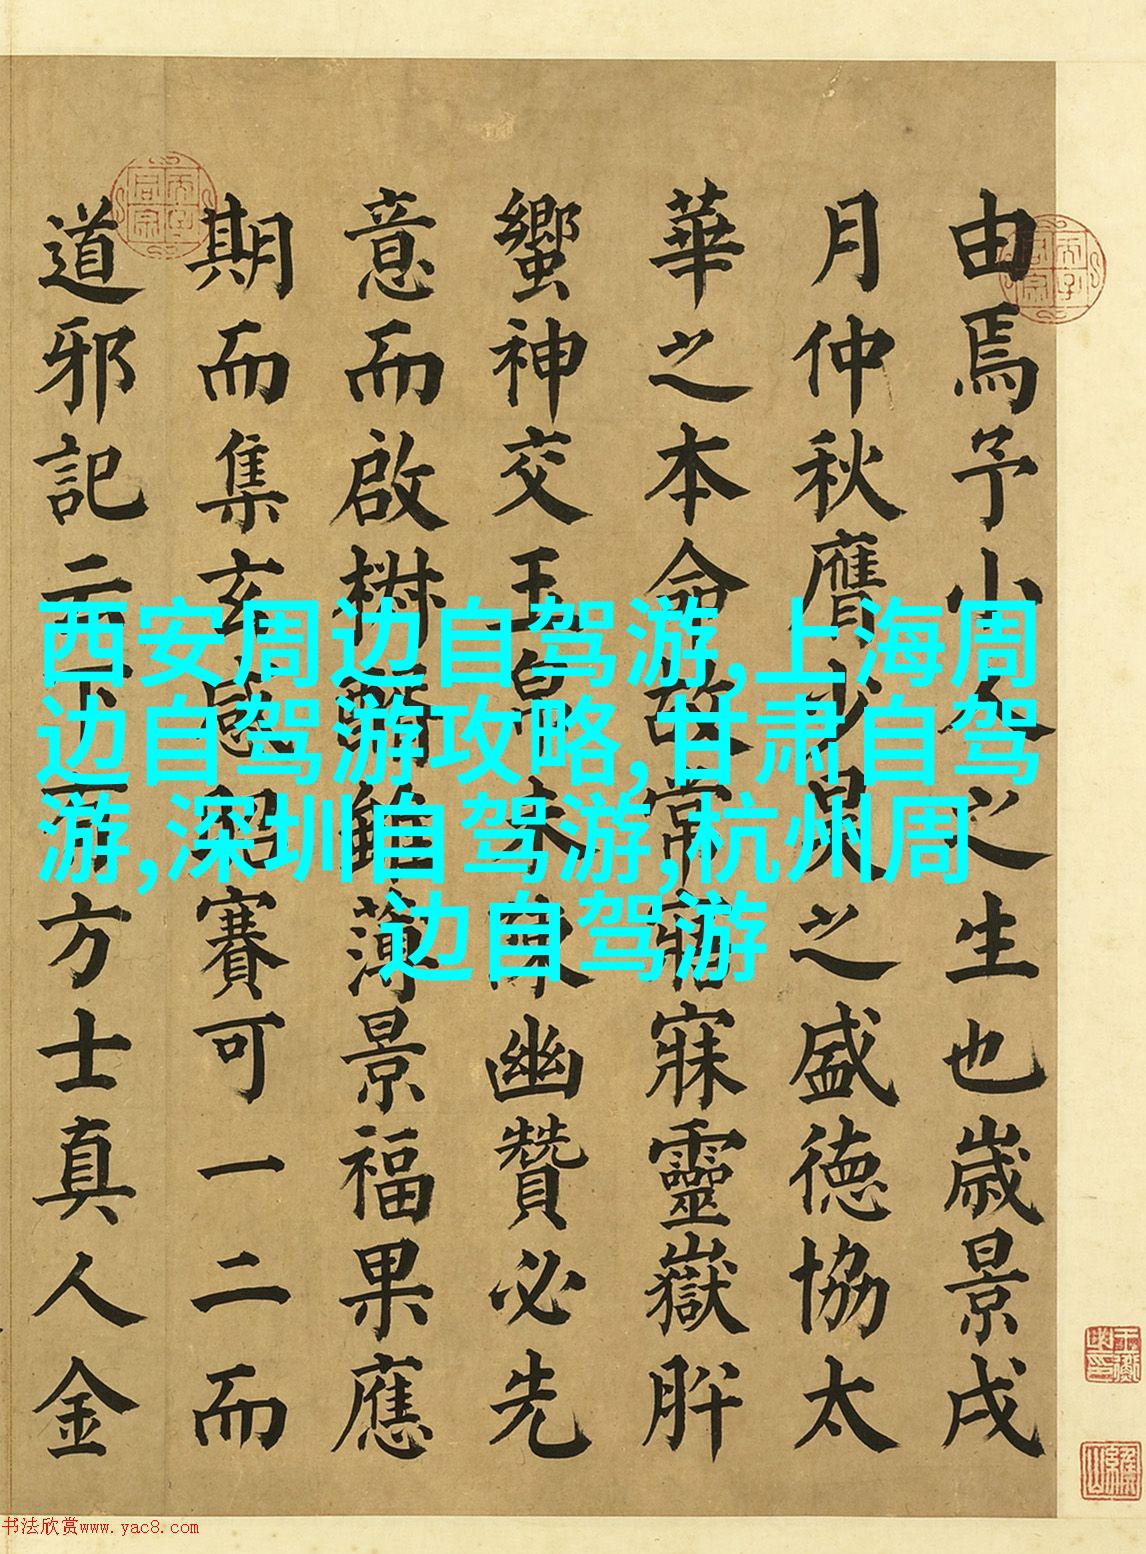 由焉予小之生也歲景戌
月仲秋膺少昊之盛德協太
華之本命故常寤寐靈嶽肸
蠁神交幽贊必先
意而啟薄景福果應
期而集玄感昭賽可一二而
道邪記方士真人金
西安周边自驾游,上海周
边自驾游攻略,甘肃自驾
游,深圳自驾游,杭州周
边自驾游
书法欣赏www.yac8.com